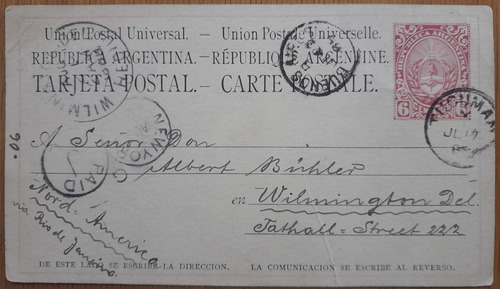 Union Postal Universal. - Union Postale Universelle.
REPUBLICA ARGENTINA. - RÉPUBLIQUE ARGENTINE.
TARJETA POSTAL. - CARTE POSTALE.
REPUBLICA ARGENTINA
6 6
BUENOS AIRES
WILMIN DEL
TUCUMAN
JL 14
NEW YORK
PAID
.90
A Señor Don
Albert Bühler
en Wilmington Del.
Tathall-Street 222
Nord-America
via Rio de Janeiro.
DE ESTE LADO SE ESCRIBE LA DIRECCION. LA COMUNICACION SE ESCRIBE AL REVERSO.